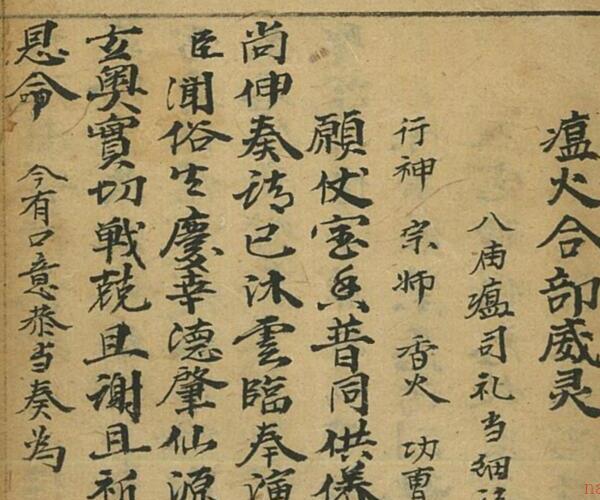 瘟火合部威灵
八庙瘟司礼当细
行神 宗师 香火 功曹
愿仗宝香普同供养
尚伸奏请已沐云临奉演
臣闻俗生庆幸德肇仙源
玄奥实切戦兢且谢且祈
恩命 今有口意恭当奏为
na